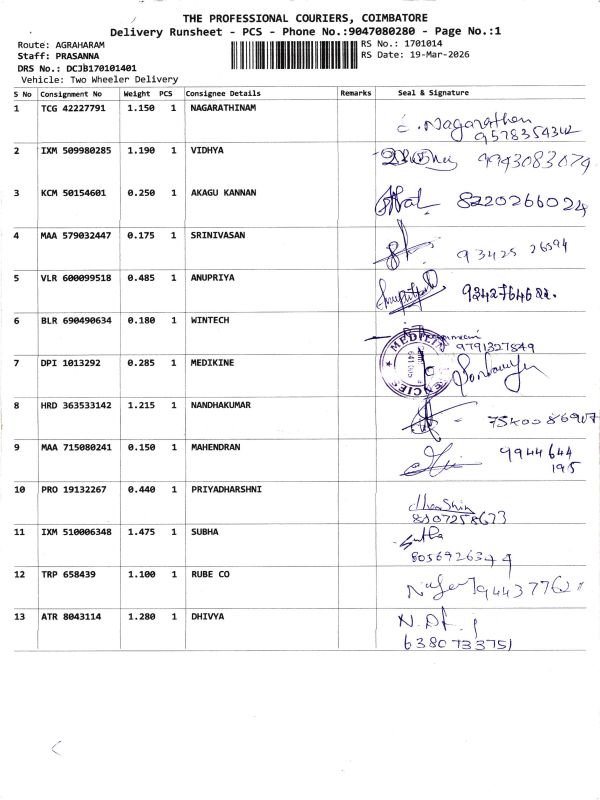 THE PROFESSIONAL COURIERS, COIMBATORE
Delivery Runsheet - PCS - Phone No.:9047080280 - Page No.:1
Route: AGRAHARAM
Staff: PRASANNA
DRS No.: DCJB170101401
Vehicle: Two Wheeler Delivery
RS No.: 1701014
RS Date: 19-Mar-2026
S No Consignment No Weight PCS Consignee Details Remarks Seal & Signature
1 TCG 42227791 1.150 1 NAGARATHINAM
C. Nagarathen
9578354312
2 IXM 509980285 1.190 1 VIDHYA 9943083079
3 KCM 50154601 0.250 1 AKAGU KANNAN 8220266024
4 MAA 579032447 0.175 1 SRINIVASAN
93425 26594
5 VLR 600099518 0.485 1 ANUPRIYA
6 BLR 690490634 0.180 1 WINTECH
9791327849
7 DPI 1013292 0.285 1 MEDIKINE
8 HRD 363533142 1.215 1 NANDHAKUMAR
7540086907
9 MAA 715080241 0.150 1 MAHENDRAN
9944644
195
10 PRO 19132267 0.440 1 PRIYADHARSHNI
11 IXM 510006348 1.475 1 SUBHA
Subha
12 TRP 658439 1.100 1 RUBE CO
13 ATR 8043114 1.280 1 DHIVYA
6380733751